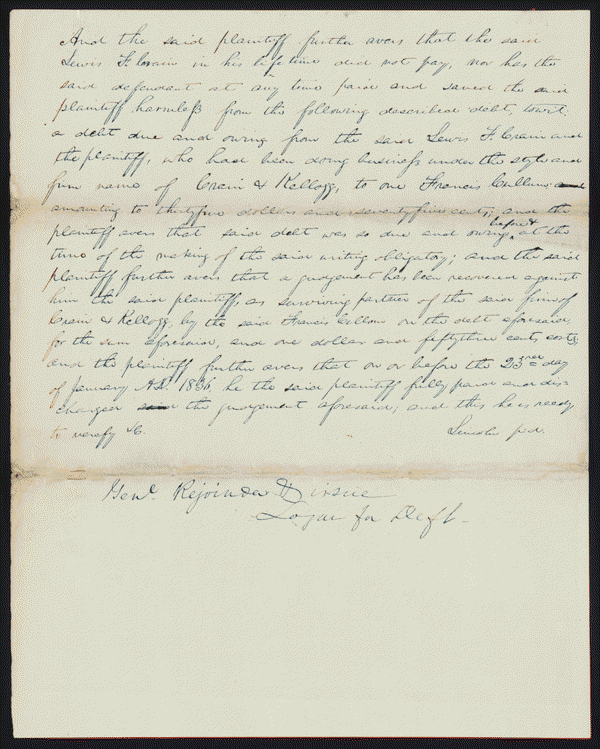 And the said plaintiff further avers that the said
Lewis F. Crain in his life time did not pay, nor has the
said defendant at any time paid and saved the said
plaintiff harmless from the following described debt, towit:
a debt due and owing from the said Lewis F Crain and
the plaintiff, who had been doing business under the style and
firm name of Crain & Kellogg, to one Francis Cullum
amounting to thirtyfive dollars and seventyfive cents; and the
plaintiff avers that said debt was so due and owing before & at the
time of the making of the said writing obligatory; and the said
plaintiff further avers that a judgement has been recovered against
him the said plaintiff, as surviving partner of the said firm of
Crain & Kellogg, by the said Francis Cullom on the debt aforesaid,
for the sum aforesaid, and one dollar and fiftythree cents costs,
and the plaintiff further avers that on or before the 23rd day
of January AD. 1836 he the said plaintiff fully paid and dis=
charged the judgement aforesaid; and this he is ready
to verify &c.
Lincoln p.d.
Genl. Rejoinder & issue
Logan for Deft-